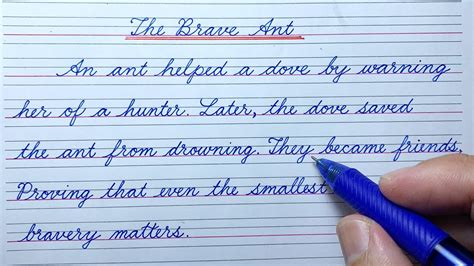 The Brave Ant
An ant helped a dove by warning
her of a hunter. Later, the dove saved
the ant from drowning. They became friends,
Proving that even the smallest
bravery matters.